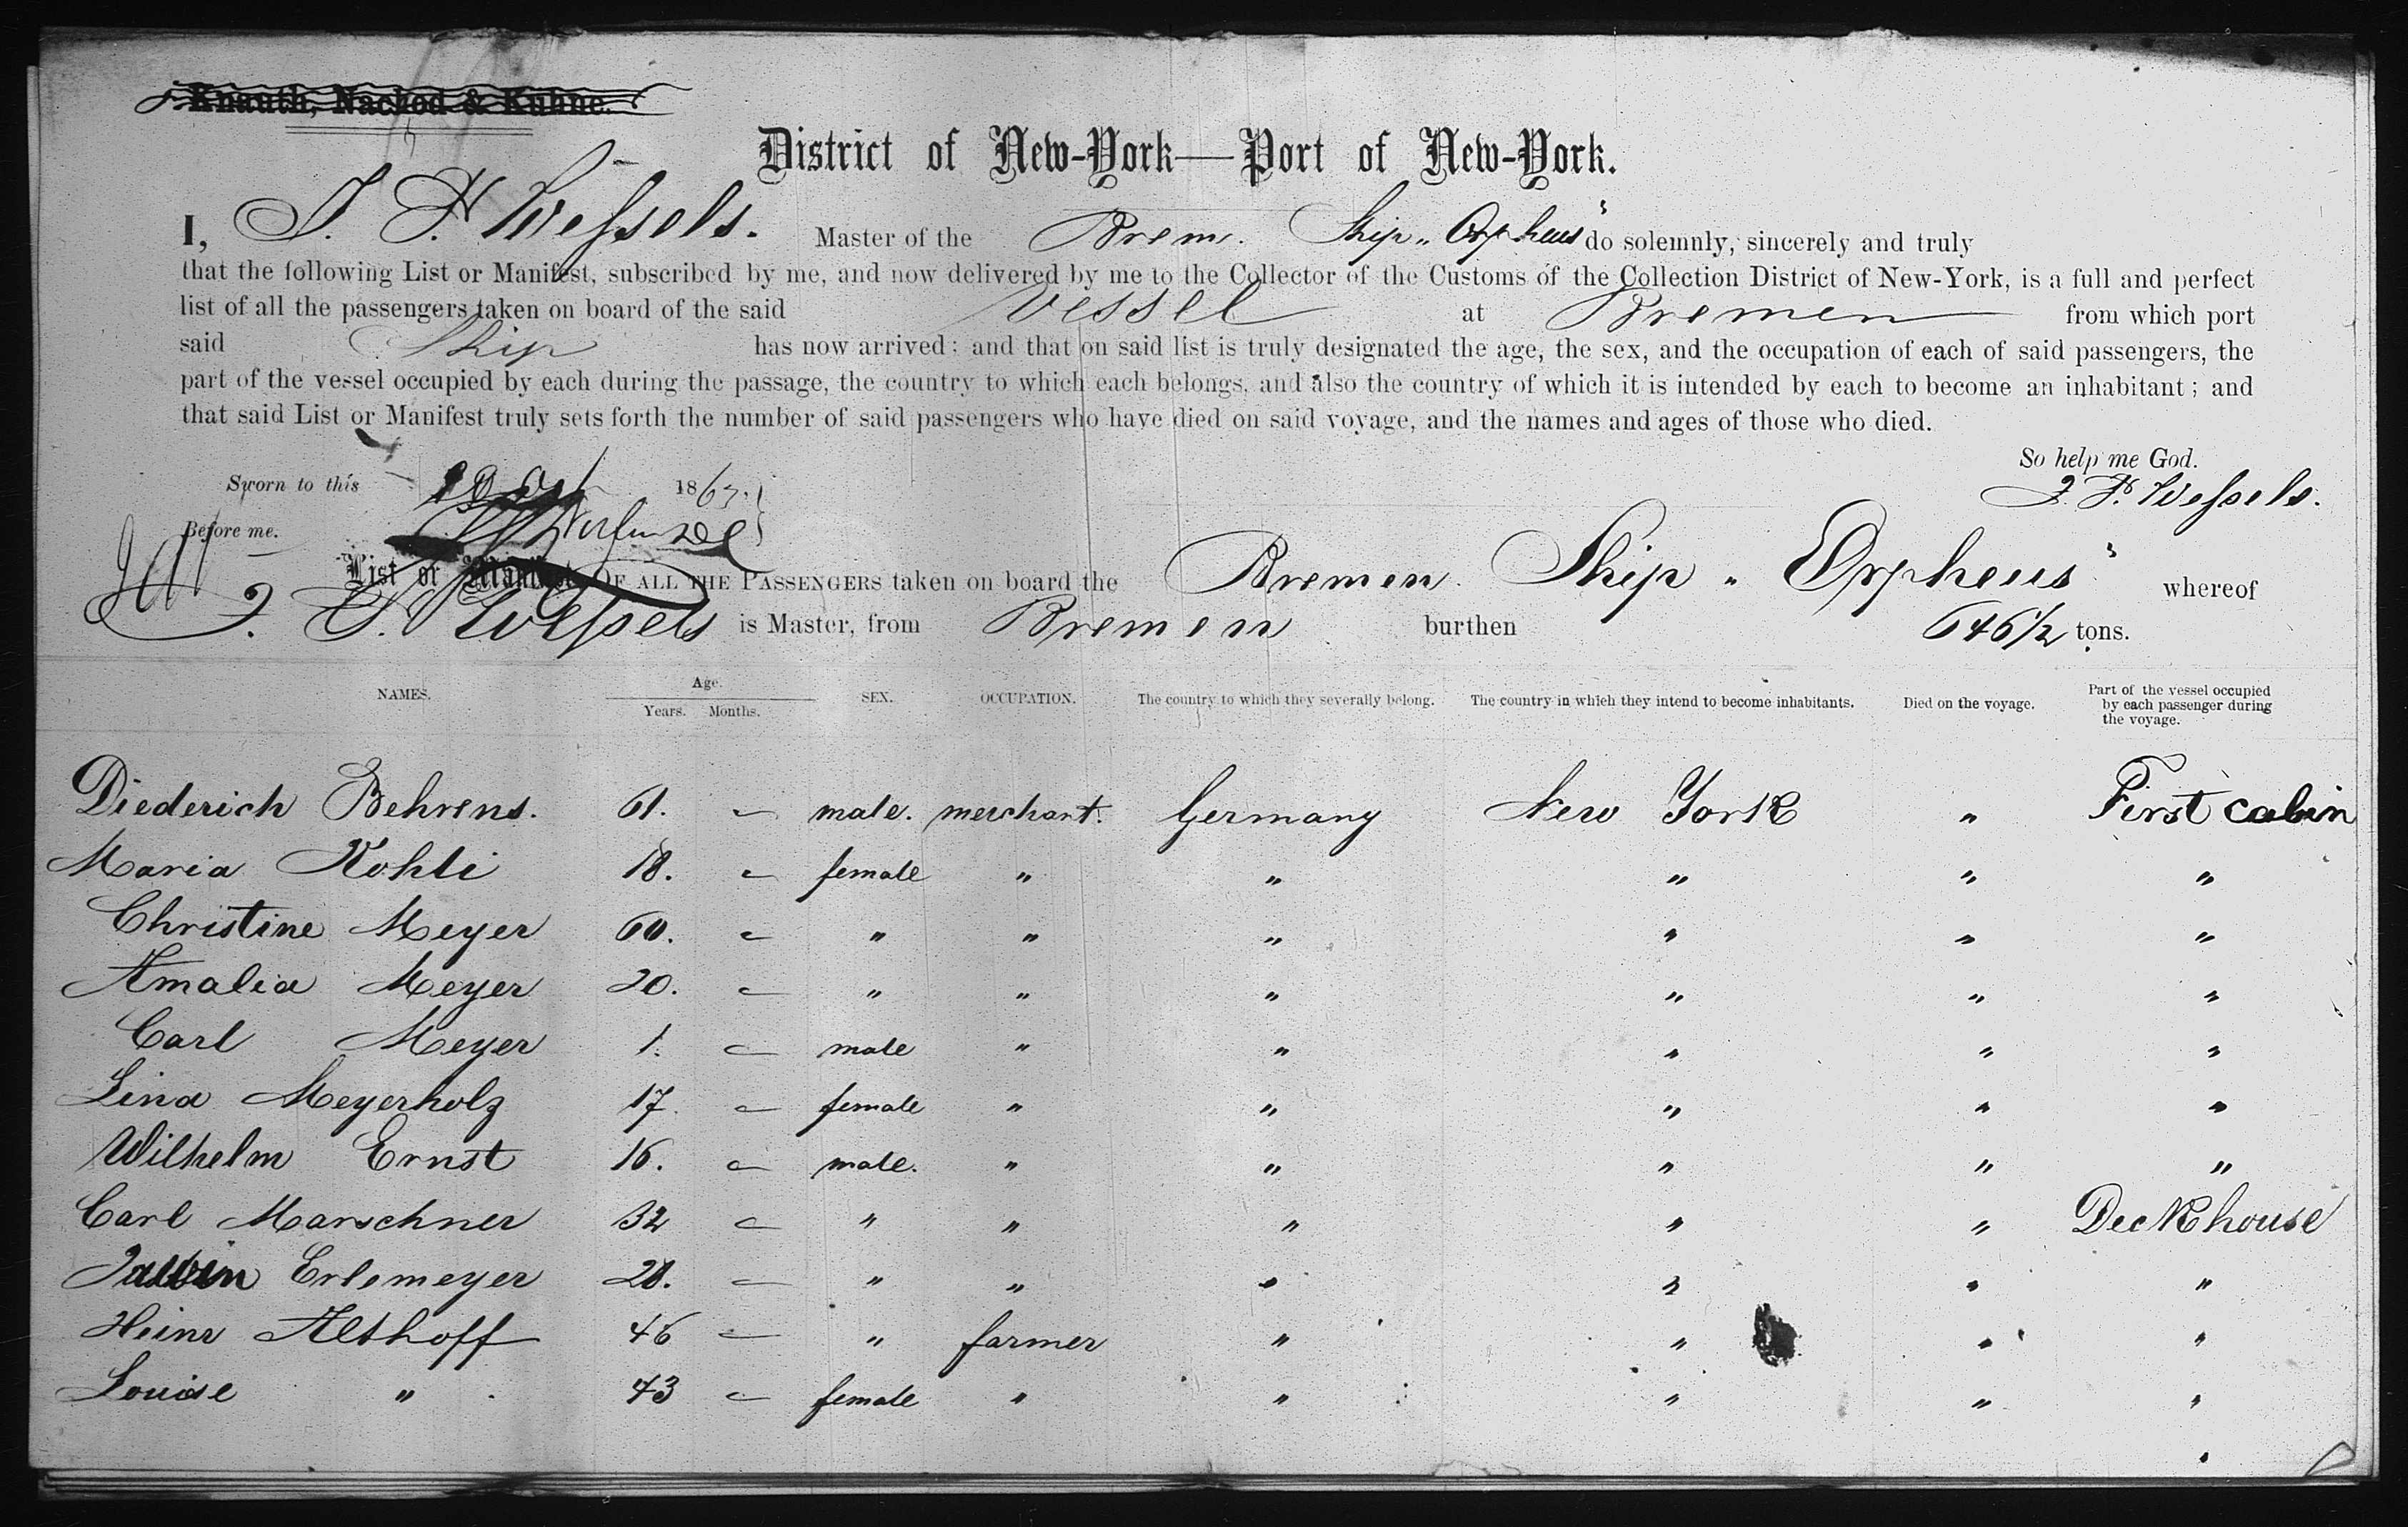 Knauth, Nachod & Kuhne.
District of New-York—Port of New-York.
I, J. F. Wessels. Master of the Brem. Ship „Orpheus" do solemnly, sincerely and truly
that the following List or Manifest, subscribed by me, and now delivered by me to the Collector of the Customs of the Collection District of New-York, is a full and perfect
list of all the passengers taken on board of the said Vessel at Bremen from which port
said Ship has now arrived; and that on said list is truly designated the age, the sex, and the occupation of each of said passengers, the
part of the vessel occupied by each during the passage, the country to which each belongs, and also the country of which it is intended by each to become an inhabitant; and
that said List or Manifest truly sets forth the number of said passengers who have died on said voyage, and the names and ages of those who died.
So help me God.
Sworn to this 186
J. F. Wessels.
Before me.
List or Manifest OF ALL THE PASSENGERS taken on board the Bremen Ship „Orpheus" whereof
J. F. Wessels is Master, from Bremen burthen 646 1/2 tons.
NAMES. Age. Years. Months. SEX. OCCUPATION. The country to which they severally belong. The country in which they intend to become inhabitants. Died on the voyage. Part of the vessel occupied by each passenger during the voyage.
Diederich Behrens. 61. – male. merchant. Germany New York " First cabin
Maria Kohli 18. – female " " " " "
Christine Meyer 60. – " " " " " "
Amalia Meyer 20. – " " " " " "
Carl Meyer 1. – male " " " " "
Lina Meyerholz 17. – female " " " " "
Wilhelm Ernst 16. – male. " " " " "
Carl Marschner 32 – " " " " " Deckhouse
Erlemeyer 28. – " " " " " "
Heinr Althoff 46 – " farmer " " " "
Louise " 43 – female " " " " "